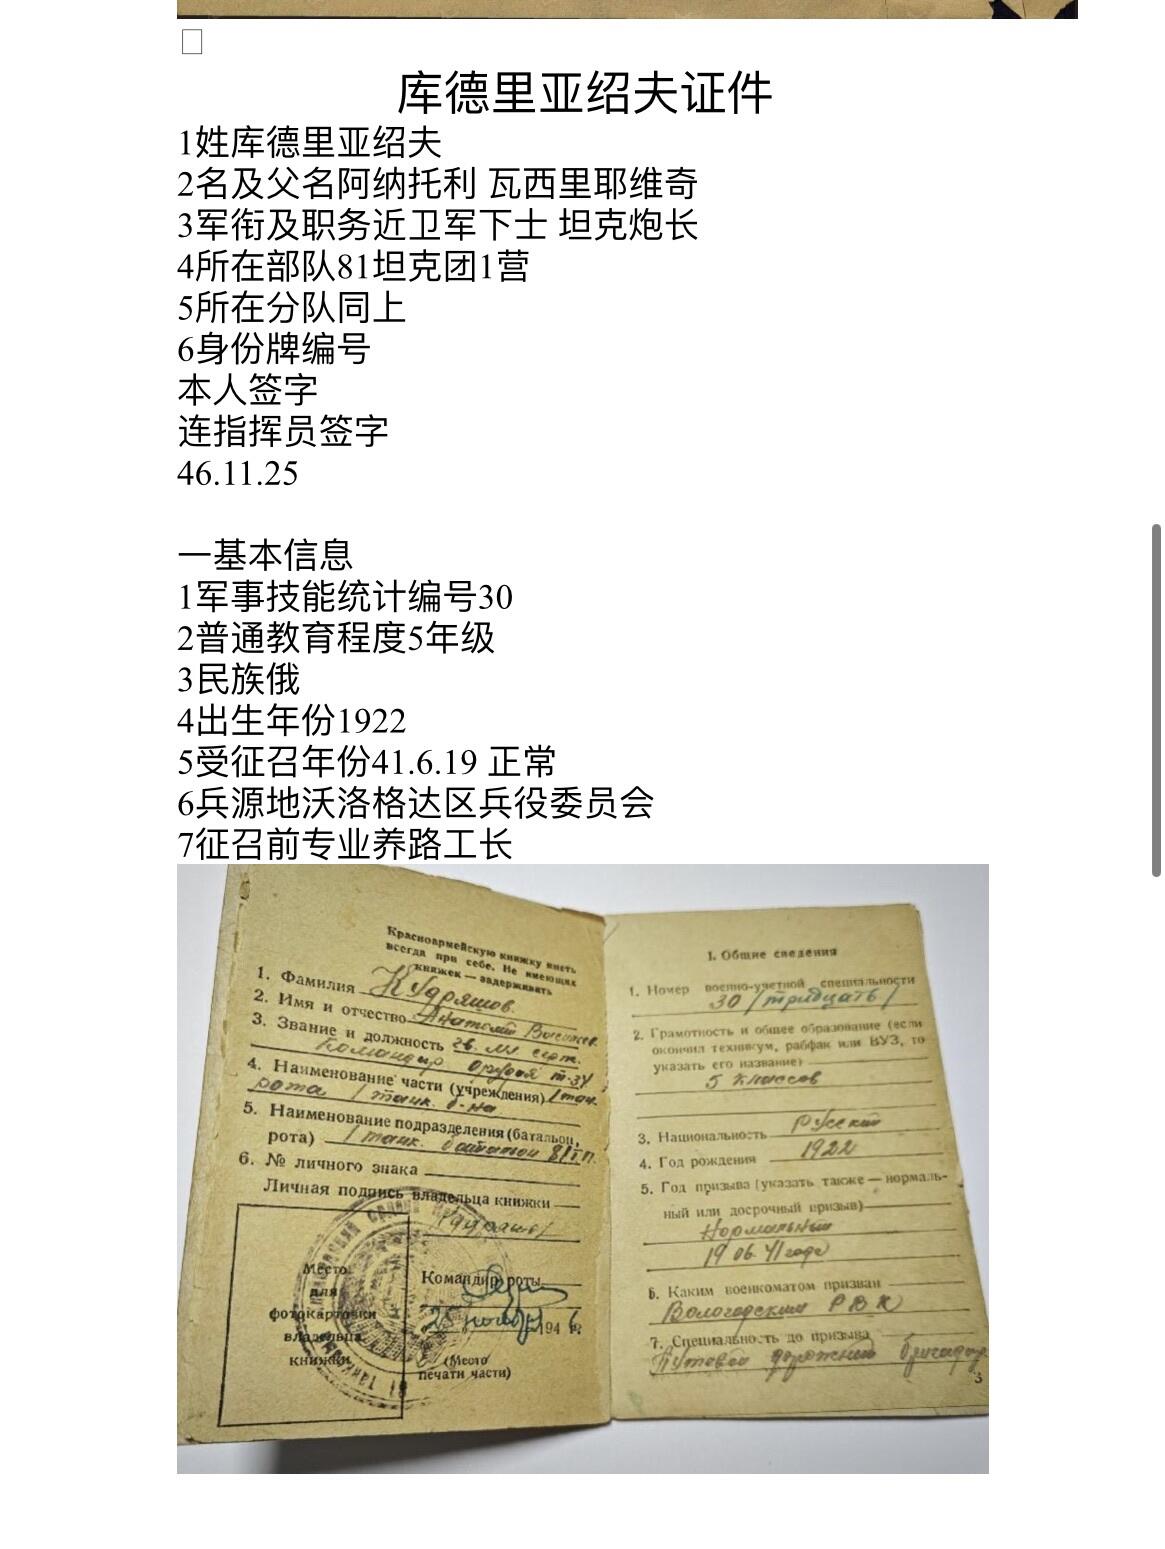 库德里亚绍夫证件
1姓库德里亚绍夫
2名及父名阿纳托利 瓦西里耶维奇
3军衔及职务近卫军下士 坦克炮长
4所在部队81坦克团1营
5所在分队同上
6身份牌编号
本人签字
连指挥员签字
46.11.25
一基本信息
1军事技能统计编号30
2普通教育程度5年级
3民族俄
4出生年份1922
5受征召年份41.6.19 正常
6兵源地沃洛格达区兵役委员会
7征召前专业养路工长
Красноармейскую книжку иметь
всегда при себе. Не имеющих
книжек — задерживать
1. Фамилия Кудряшов
2. Имя и отчество Анатолий
3. Звание и должность гв. мл. серж.
Командир орудия т-34
4. Наименование части (учреждения) 1 тан.
рота 1 танк. б-на
5. Наименование подразделения (батальон,
рота) 1 танк. батальон 81 т.п.
6. № личного знака
Личная подпись владельца книжки
Место
для
фотокарточки
владельца
книжки
Командир роты
25 ноября 1946 г.
(Место
печати части)
I. Общие сведения
1. Номер военно-учетной специальности
30 (тридцать)
2. Грамотность и общее образование (если
окончил техникум, рабфак или ВУЗ, то
указать его название)
5 классов
3. Национальность Русский
4. Год рождения 1922
5. Год призыва (указать также — нормаль-
ный или досрочный призыв)
Нормальный
19 06 41 года
6. Каким военкоматом призван
Вологодским РВК
7. Специальность до призыва
Путевой дорожный бригадир
3